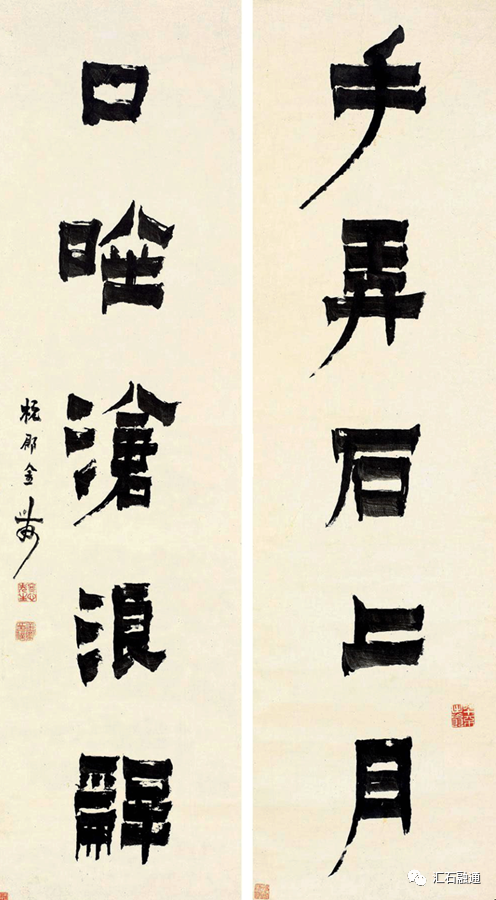 手弄石上月
口唫滄浪辭
杭郡金農
汇石融通